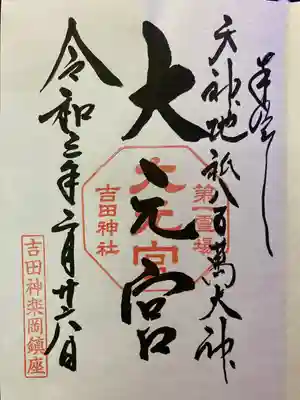 奉拝
天神地祇八百萬大神
大元宮
令和三年二月廿六日
第一霊場
大元宮
吉田神社
吉田神楽岡鎮座